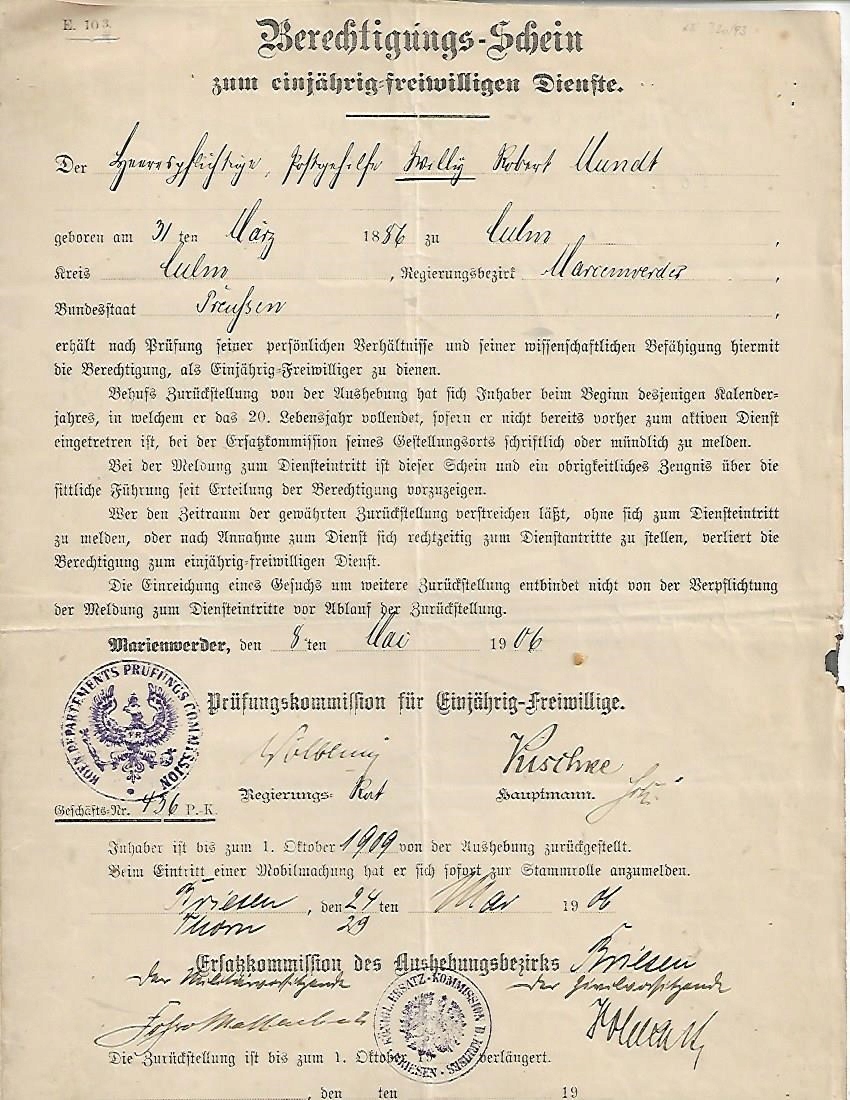 E. 103.
Berechtigungs-Schein
zum einjährig-freiwilligen Dienste.
Der Heerespflichtige, Postgehilfe Willy Robert Mundt
geboren am 31 ten März 1886 zu Culm,
Kreis Culm, Regierungsbezirk Marienwerder,
Bundesstaat Preussen,
erhält nach Prüfung seiner persönlichen Verhältnisse und seiner wissenschaftlichen Befähigung hiermit
die Berechtigung, als Einjährig-Freiwilliger zu dienen.
Behufs Zurückstellung von der Aushebung hat sich Inhaber beim Beginn desjenigen Kalender-
jahres, in welchem er das 20. Lebensjahr vollendet, sofern er nicht bereits vorher zum aktiven Dienst
eingetreten ist, bei der Ersatzkommission seines Gestellungsorts schriftlich oder mündlich zu melden.
Bei der Meldung zum Diensteintritt ist dieser Schein und ein obrigkeitliches Zeugnis über die
sittliche Führung seit Erteilung der Berechtigung vorzuzeigen.
Wer den Zeitraum der gewährten Zurückstellung verstreichen läßt, ohne sich zum Diensteintritt
zu melden, oder nach Annahme zum Dienst sich rechtzeitig zum Dienstantritte zu stellen, verliert die
Berechtigung zum einjährig-freiwilligen Dienst.
Die Einreichung eines Gesuchs um weitere Zurückstellung entbindet nicht von der Verpflichtung
der Meldung zum Diensteintritte vor Ablauf der Zurückstellung.
Marienwerder, den 8 ten Mai 1906
DEPARTEMENTS PRÜFUNGS COMMISSION
FR
Prüfungskommission für Einjährig-Freiwillige.
Regierungs- Rat Hauptmann.
Geschäfts-Nr. 436 P.-K.
Inhaber ist bis zum 1. Oktober 1909 von der Aushebung zurückgestellt.
Beim Eintritt einer Mobilmachung hat er sich sofort zur Stammrolle anzumelden.
Briesen, den 24 ten Mai 1906
Thorn 29
Ersatzkommission des Aushebungsbezirks Briesen
Der Militärvorsitzende Der Civilvorsitzende
KÖNIGL. ERSATZ-KOMMISSION D. KREISES BRIESEN
Die Zurückstellung ist bis zum 1. Oktober 19 verlängert.
, den ten 19